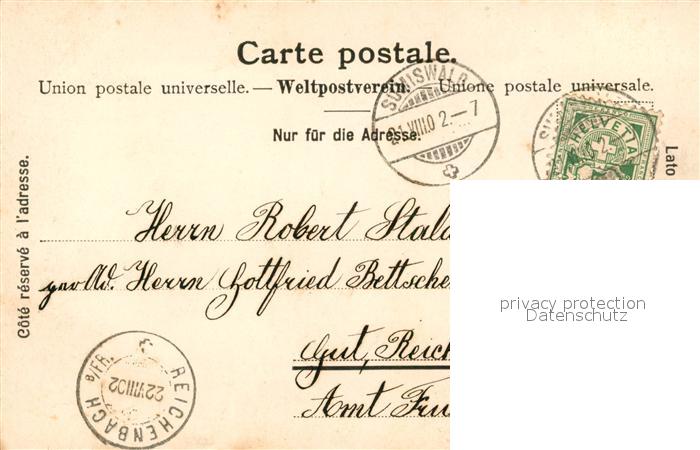 Carte postale.
Union postale universelle. — Weltpostverein. — Unione postale universale.
Nur für die Adresse.
SUMISWALD
VIII.0 2–7
HELVETIA
Côté réservé à l'adresse.
Lato
Herrn Robert Stald
Herrn Gottfried Bettsche
Gut, Reich
Amt Fru
privacy protection
Datenschutz
REICHENBACH B/FR.
22 VIII 02